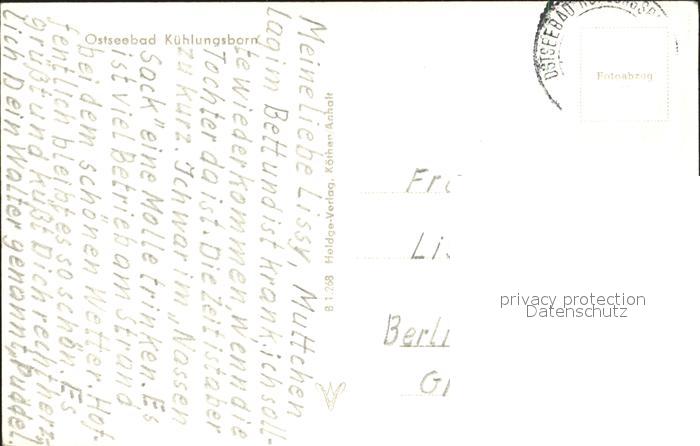 Ostseebad Kühlungsborn
Meine liebe Lissy, Muttchen
lag im Bett und ist krank. ich soll-
te wiederkommen, wenn die
Tochter da ist. Die Zeit ist aber
zu kurz. Ich war im „Nassen
Sack" eine Molle trinken. Es
ist viel Betrieb am Strand
bei dem schönen Wetter. Hof-
fentlich bleibt es so schön. Es
grüßt und küßt Dich recht herz-
lich Dein Walter genannt „Puddel
B 1:268 Heldge-Verlag, Köthen-Anhalt
OSTSEEBAD
Fotoabzug
Fr
Li
Berli
privacy protection
Datenschutz